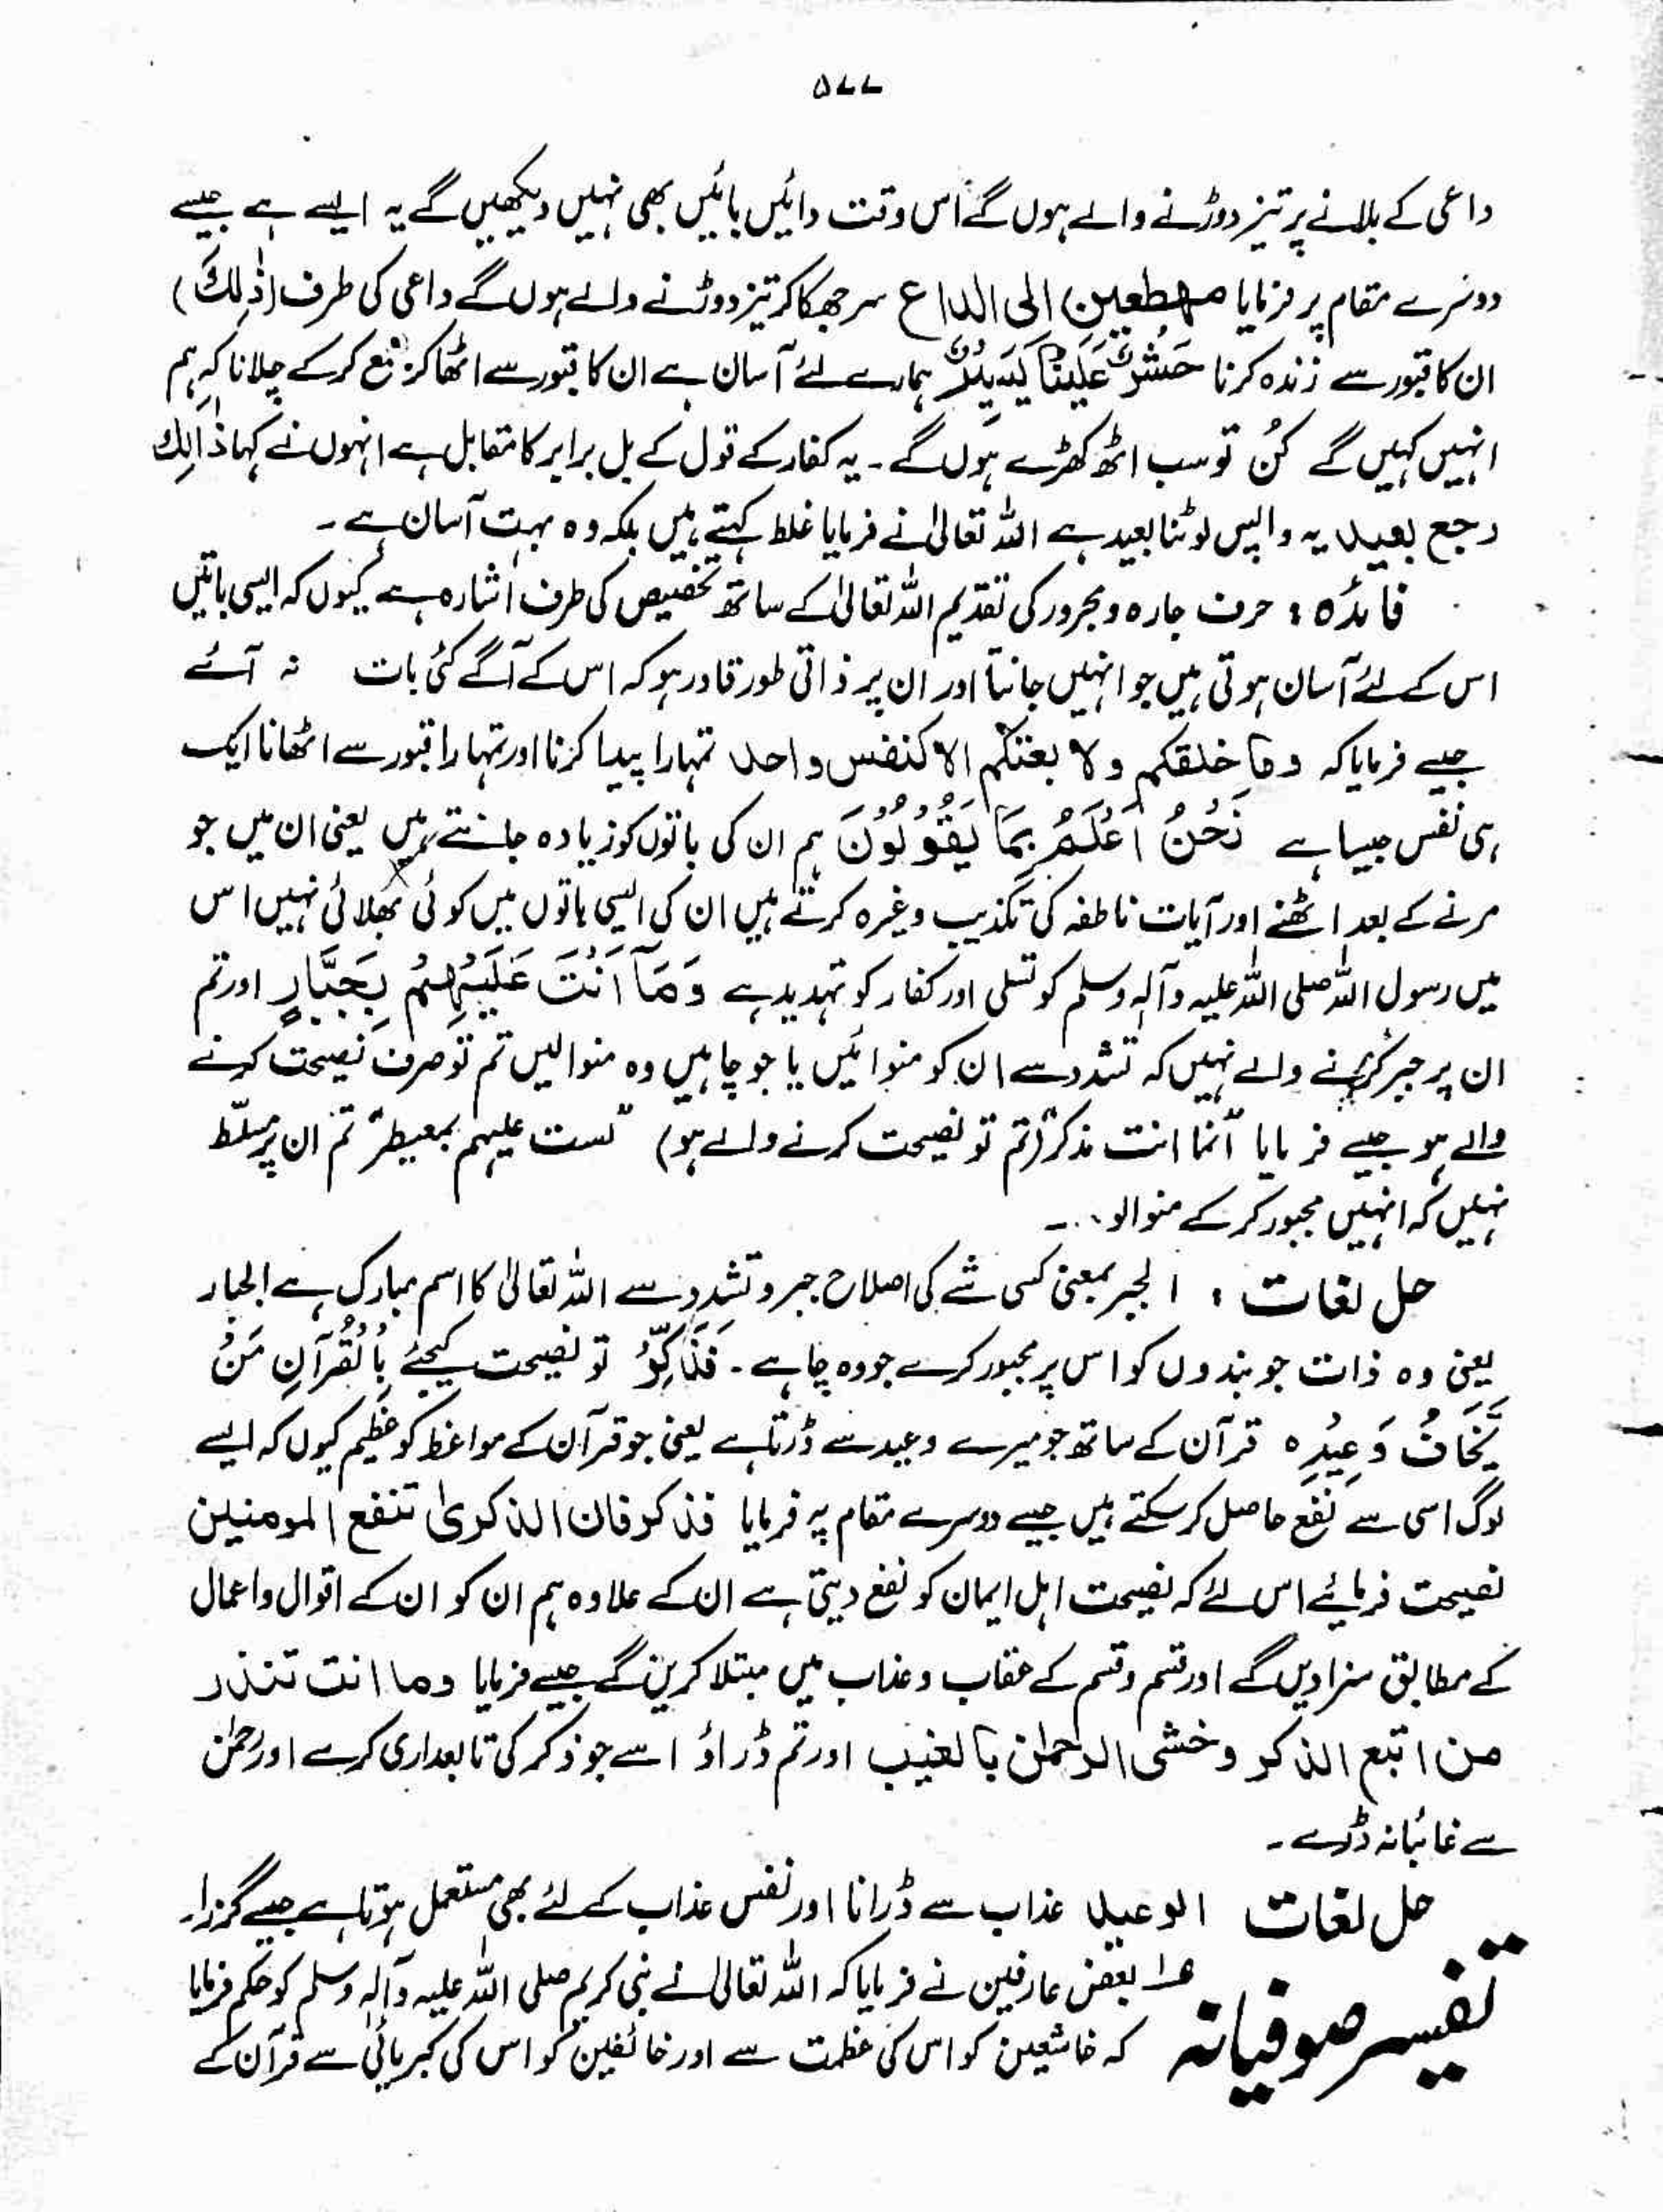 ۵۷۷
داعی کے بلانے پر تیز دوڑنے والے ہوں گے اس وقت دائیں بائیں بھی نہیں دیکھیں گے یہ ایسے ہے جیسے
دوسرے مقام پر فرمایا مهطعين الى الداع سر جھکا کر تیز دوڑنے والے ہوں گے داعی کی طرف (ذٰلِكَ)
ان کا قبور سے زندہ کرنا حَشْرٌ عَلَيْنَا يَسِيْرٌ ہمارے لئے آسان ہے ان کا قبور سے اٹھا کر جمع کرکے چلانا کہ ہم
انہیں کہیں گے کُن تو سب اٹھ کھڑے ہوں گے ۔ یہ کفار کے قول کے بل برابر کا مقابل ہے انہوں نے کہا ذالك
رجع بعيد یہ واپس لوٹنا بعید ہے اللہ تعالیٰ نے فرمایا غلط کہتے ہیں بلکہ وہ بہت آسان ہے ۔
فائدہ : حرف جارہ و مجرور کی تقدیم اللہ تعالیٰ کے ساتھ تخصیص کی طرف اشارہ ہے کیوں کہ ایسی باتیں
اس کے لئے آسان ہوتی ہیں جو انہیں جانتا اور ان پر ذاتی طور قادر ہو کہ اس کے آگے کئی بات نہ آئے
جیسے فرمایا کہ وما خلقكم ولا بعثكم الا كنفس واحد تمہارا پیدا کرنا اور تمہارا قبور سے اٹھانا ایک
ہی نفس جیسا ہے نَحْنُ اَعْلَمُ بِمَا يَقُوْلُوْنَ ہم ان کی باتوں کو زیادہ جانتے ہیں یعنی ان میں جو
مرنے کے بعد اٹھنے اور آیات ناطفہ کی تکذیب وغیرہ کرتے ہیں ان کی ایسی باتوں میں کوئی بھلائی نہیں اس
میں رسول اللہ صلی اللہ علیہ وآلہ وسلم کو تسلی اور کفار کو تہدید ہے وَمَآ اَنْتَ عَلَيْهِمْ بِجَبَّارٍ اور تم
ان پر جبر کرنے والے نہیں کہ تشدد سے ان کو منوائیں یا جو چاہیں وہ منوالیں تم تو صرف نصیحت کرنے
والے ہو جیسے فرمایا انما انت مذکر" (تم تو نصیحت کرنے والے ہو) "لست عليهم بمعيطر" تم ان پر مسلّط
نہیں کہ انہیں مجبور کر کے منوالو ۔۔
حل لغات : الجبر بمعنی کسی شے کی اصلاح جبر و تشدد سے اللہ تعالیٰ کا اسم مبارک ہے الجبار
یعنی وہ ذات جو بندوں کو اس پر مجبور کرے جو وہ چاہے ۔ فَذَكِّرْ تو نصیحت کیجئے بِالْقُرْآنِ مَنْ
يَّخَافُ وَعِيْدِہ قرآن کے ساتھ جو میرے وعید سے ڈرتا ہے یعنی جو قرآن کے مواعظ کو عظیم کیوں کہ ایسے
لوگ اسی سے نفع حاصل کرسکتے ہیں جیسے دوسرے مقام پہ فرمایا فذكر فان الذكرىٰ تنفع المومنين
نصیحت فرمائیے اس لئے کہ نصیحت اہل ایمان کو نفع دیتی ہے ان کے علاوہ ہم ان کو ان کے اقوال و اعمال
کے مطابق سزا دیں گے اور قسم و قسم کے عقاب و عذاب میں مبتلا کریں گے جیسے فرمایا وما انت تنذر
من اتبع الذكر وخشى الرحمٰن بالغيب اور تم ڈراؤ اسے جو ذکر کی تابعداری کرے اور رحمٰن
سے غائبانہ ڈرے ۔
حل لغات الوعيد عذاب سے ڈرانا اور نفس عذاب کے لئے بھی مستعمل ہوتا ہے جیسے گزرا۔
تفسیر صوفیانہ ۱ بعض عارفین نے فرمایا کہ اللہ تعالیٰ نے نبی کریم صلی اللہ علیہ وآلہ وسلم کو حکم فرمایا
کہ خاشعین کو اس کی عظمت سے اور خائفین کو اس کی کبریائی سے قرآن کے